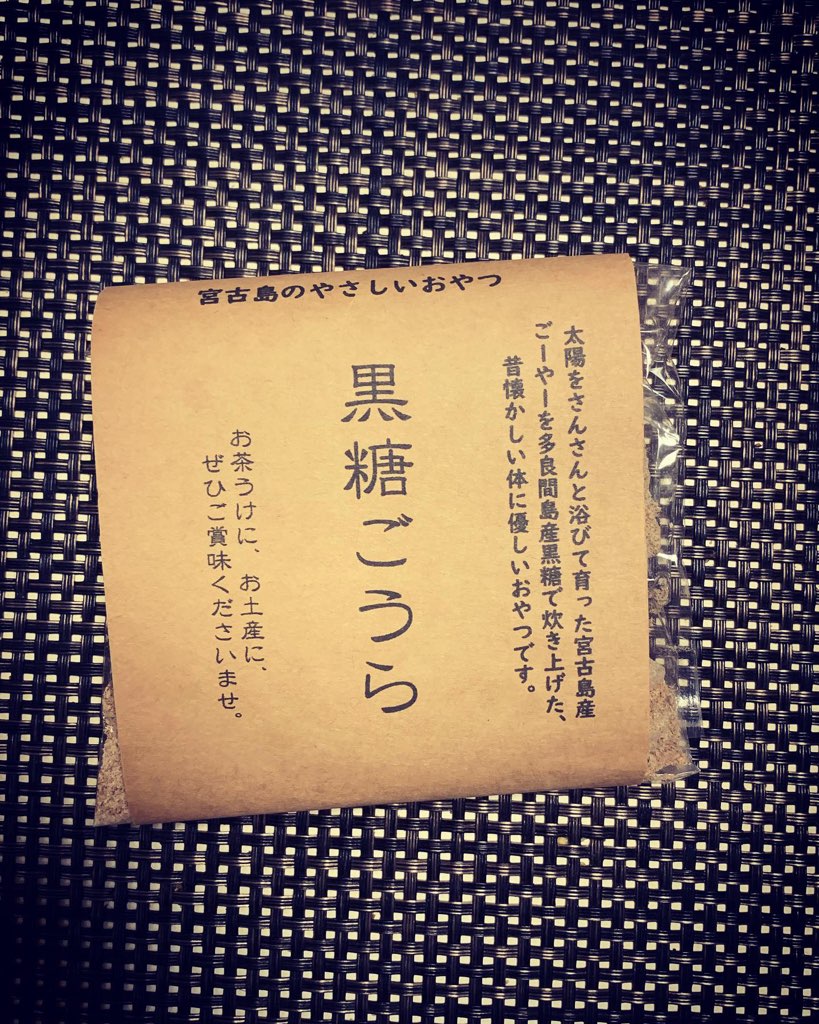 宮古島のやさしいおやつ
太陽をさんさんと浴びて育った宮古島産
ごーやーを多良間島産黒糖で炊き上げた、
昔懐かしい体に優しいおやつです。
黒糖ごうら
お茶うけに、お土産に、
ぜひご賞味くださいませ。